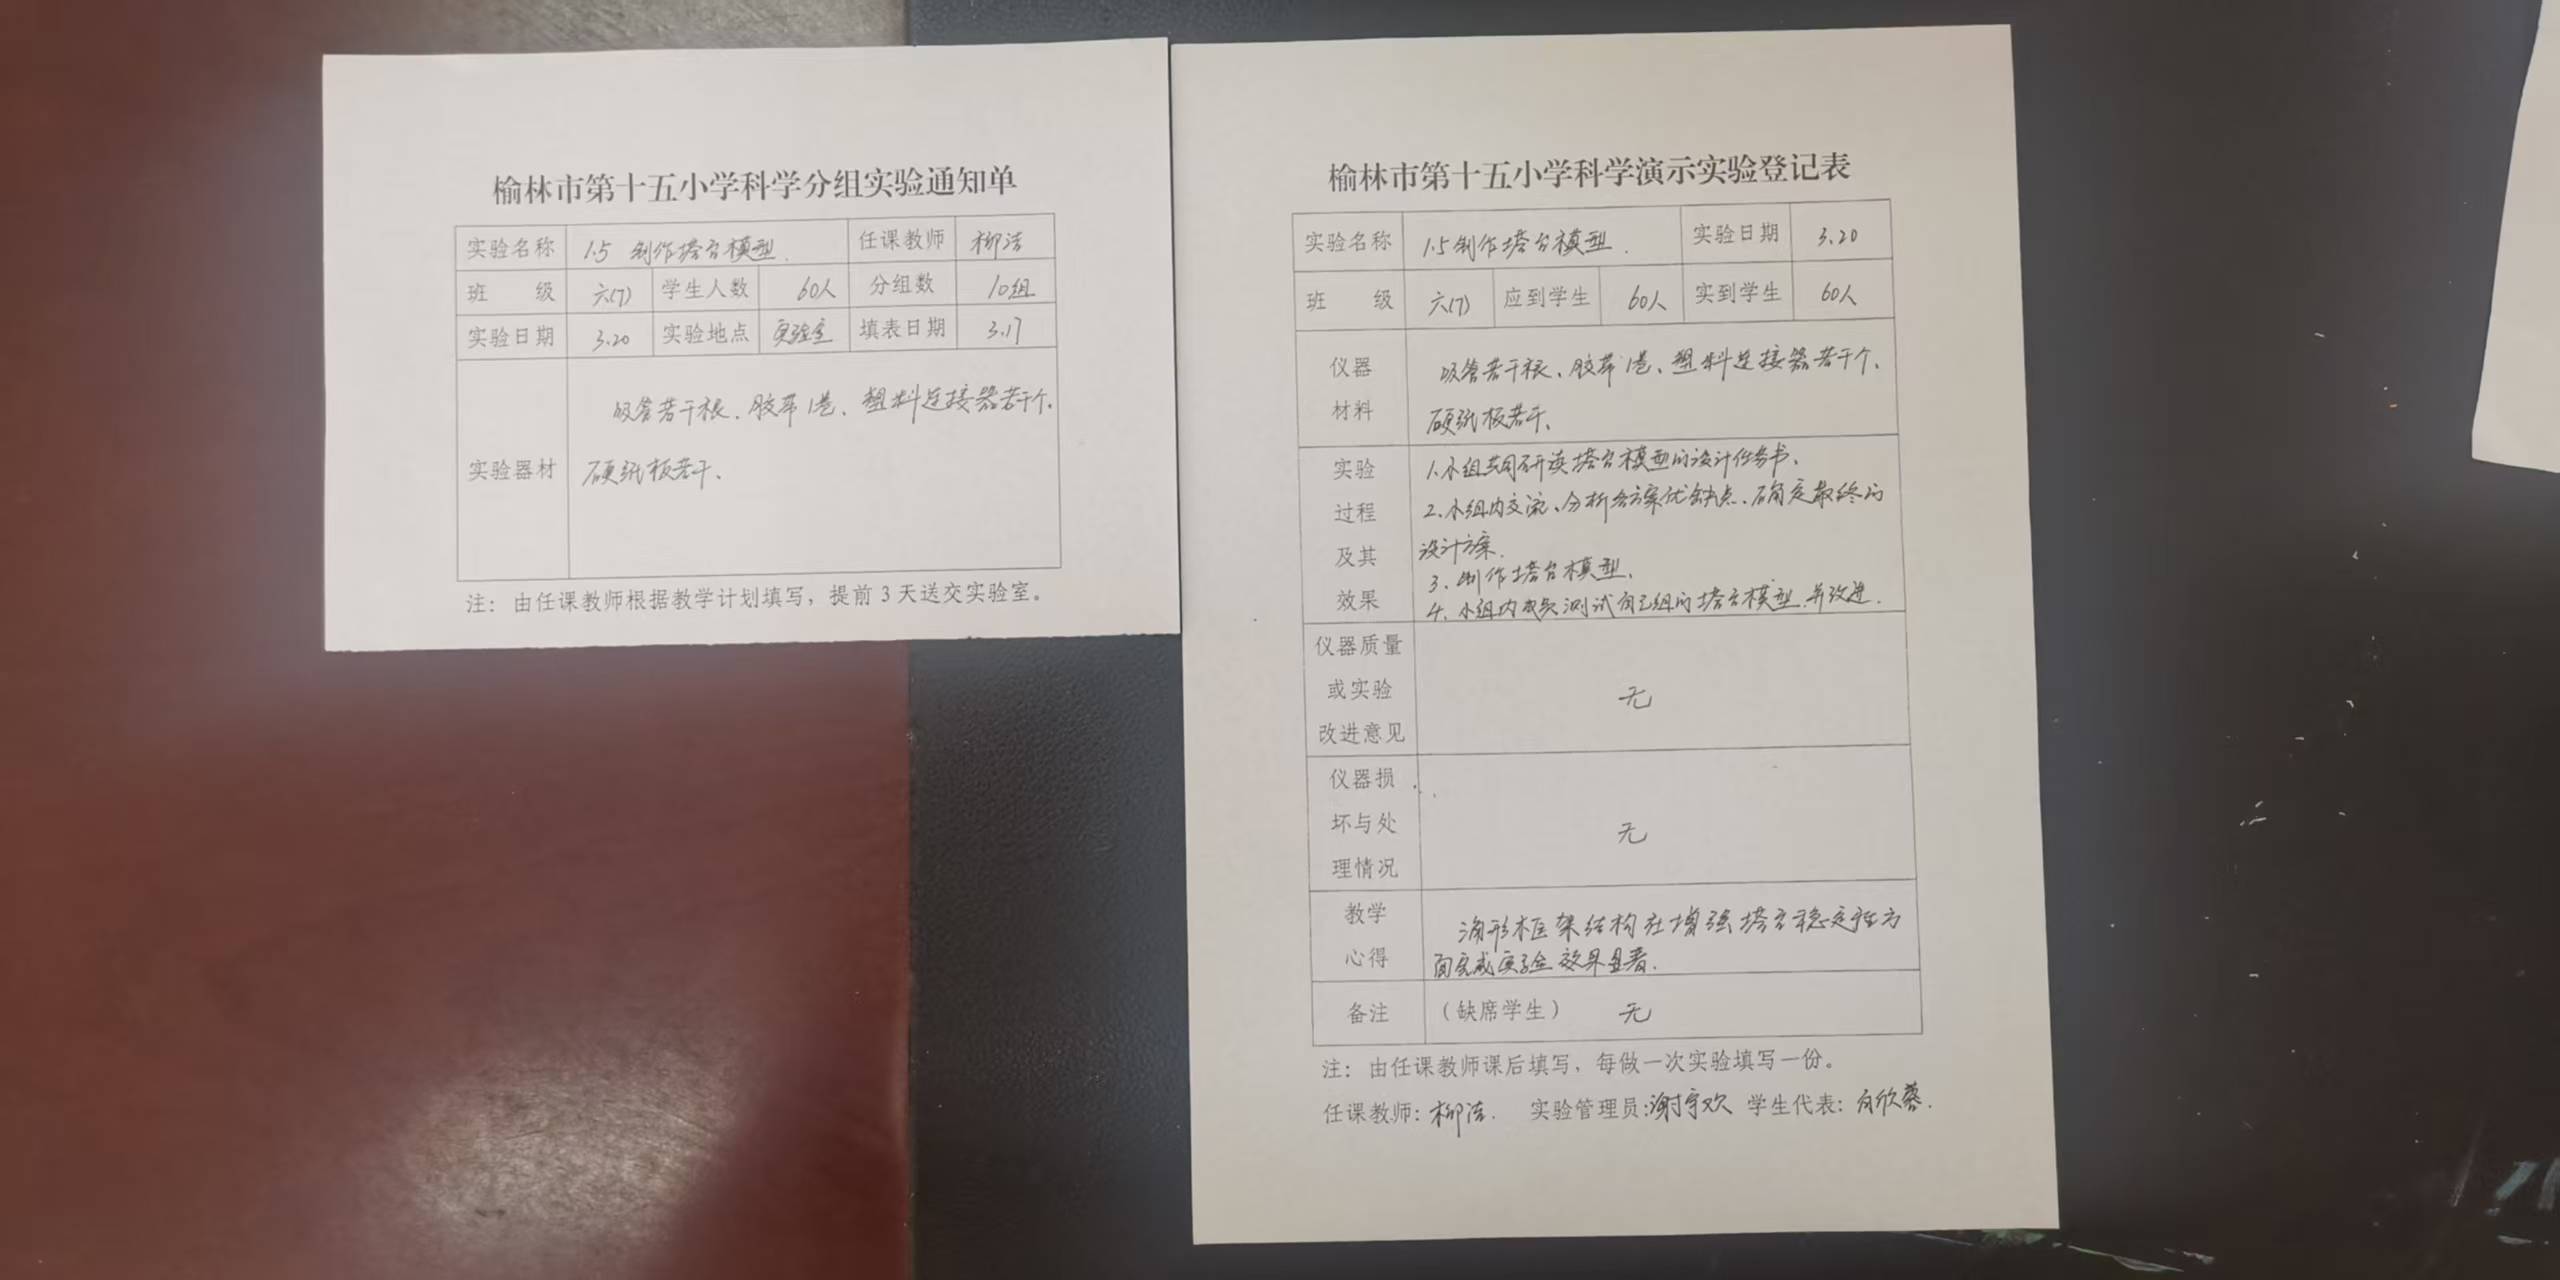 榆林市第十五小学科学分组实验通知单
实验名称 1.5 制作塔台模型. 任课教师 柳洁
班 级 六(7) 学生人数 60人 分组数 10组
实验日期 3.20 实验地点 实验室 填表日期 3.17
实验器材 吸管若干根、胶带1卷、塑料连接器若干个、
硬纸板若干、
注：由任课教师根据教学计划填写，提前3天送交实验室。
榆林市第十五小学科学演示实验登记表
实验名称 1.5制作塔台模型. 实验日期 3.20
班 级 六(7) 应到学生 60人 实到学生 60人
仪器
材料
吸管若干根、胶带1卷、塑料连接器若干个、
硬纸板若干、
实验
过程
及其
效果
1.小组共同研读塔台模型的设计任务书、
2.小组内交流、分析各方案优缺点、确定最终的
设计方案.
3、制作塔台模型、
4、小组内成员测试自己组的塔台模型并改进.
仪器质量
或实验
改进意见
无
仪器损
坏与处
理情况
无
教学
心得
形框架结构在增强塔台稳定性方
面完成实验效果显著.
备注 （缺席学生） 无
注：由任课教师课后填写，每做一次实验填写一份。
任课教师：柳洁. 实验管理员：谢宇欢 学生代表：白欣蓉.